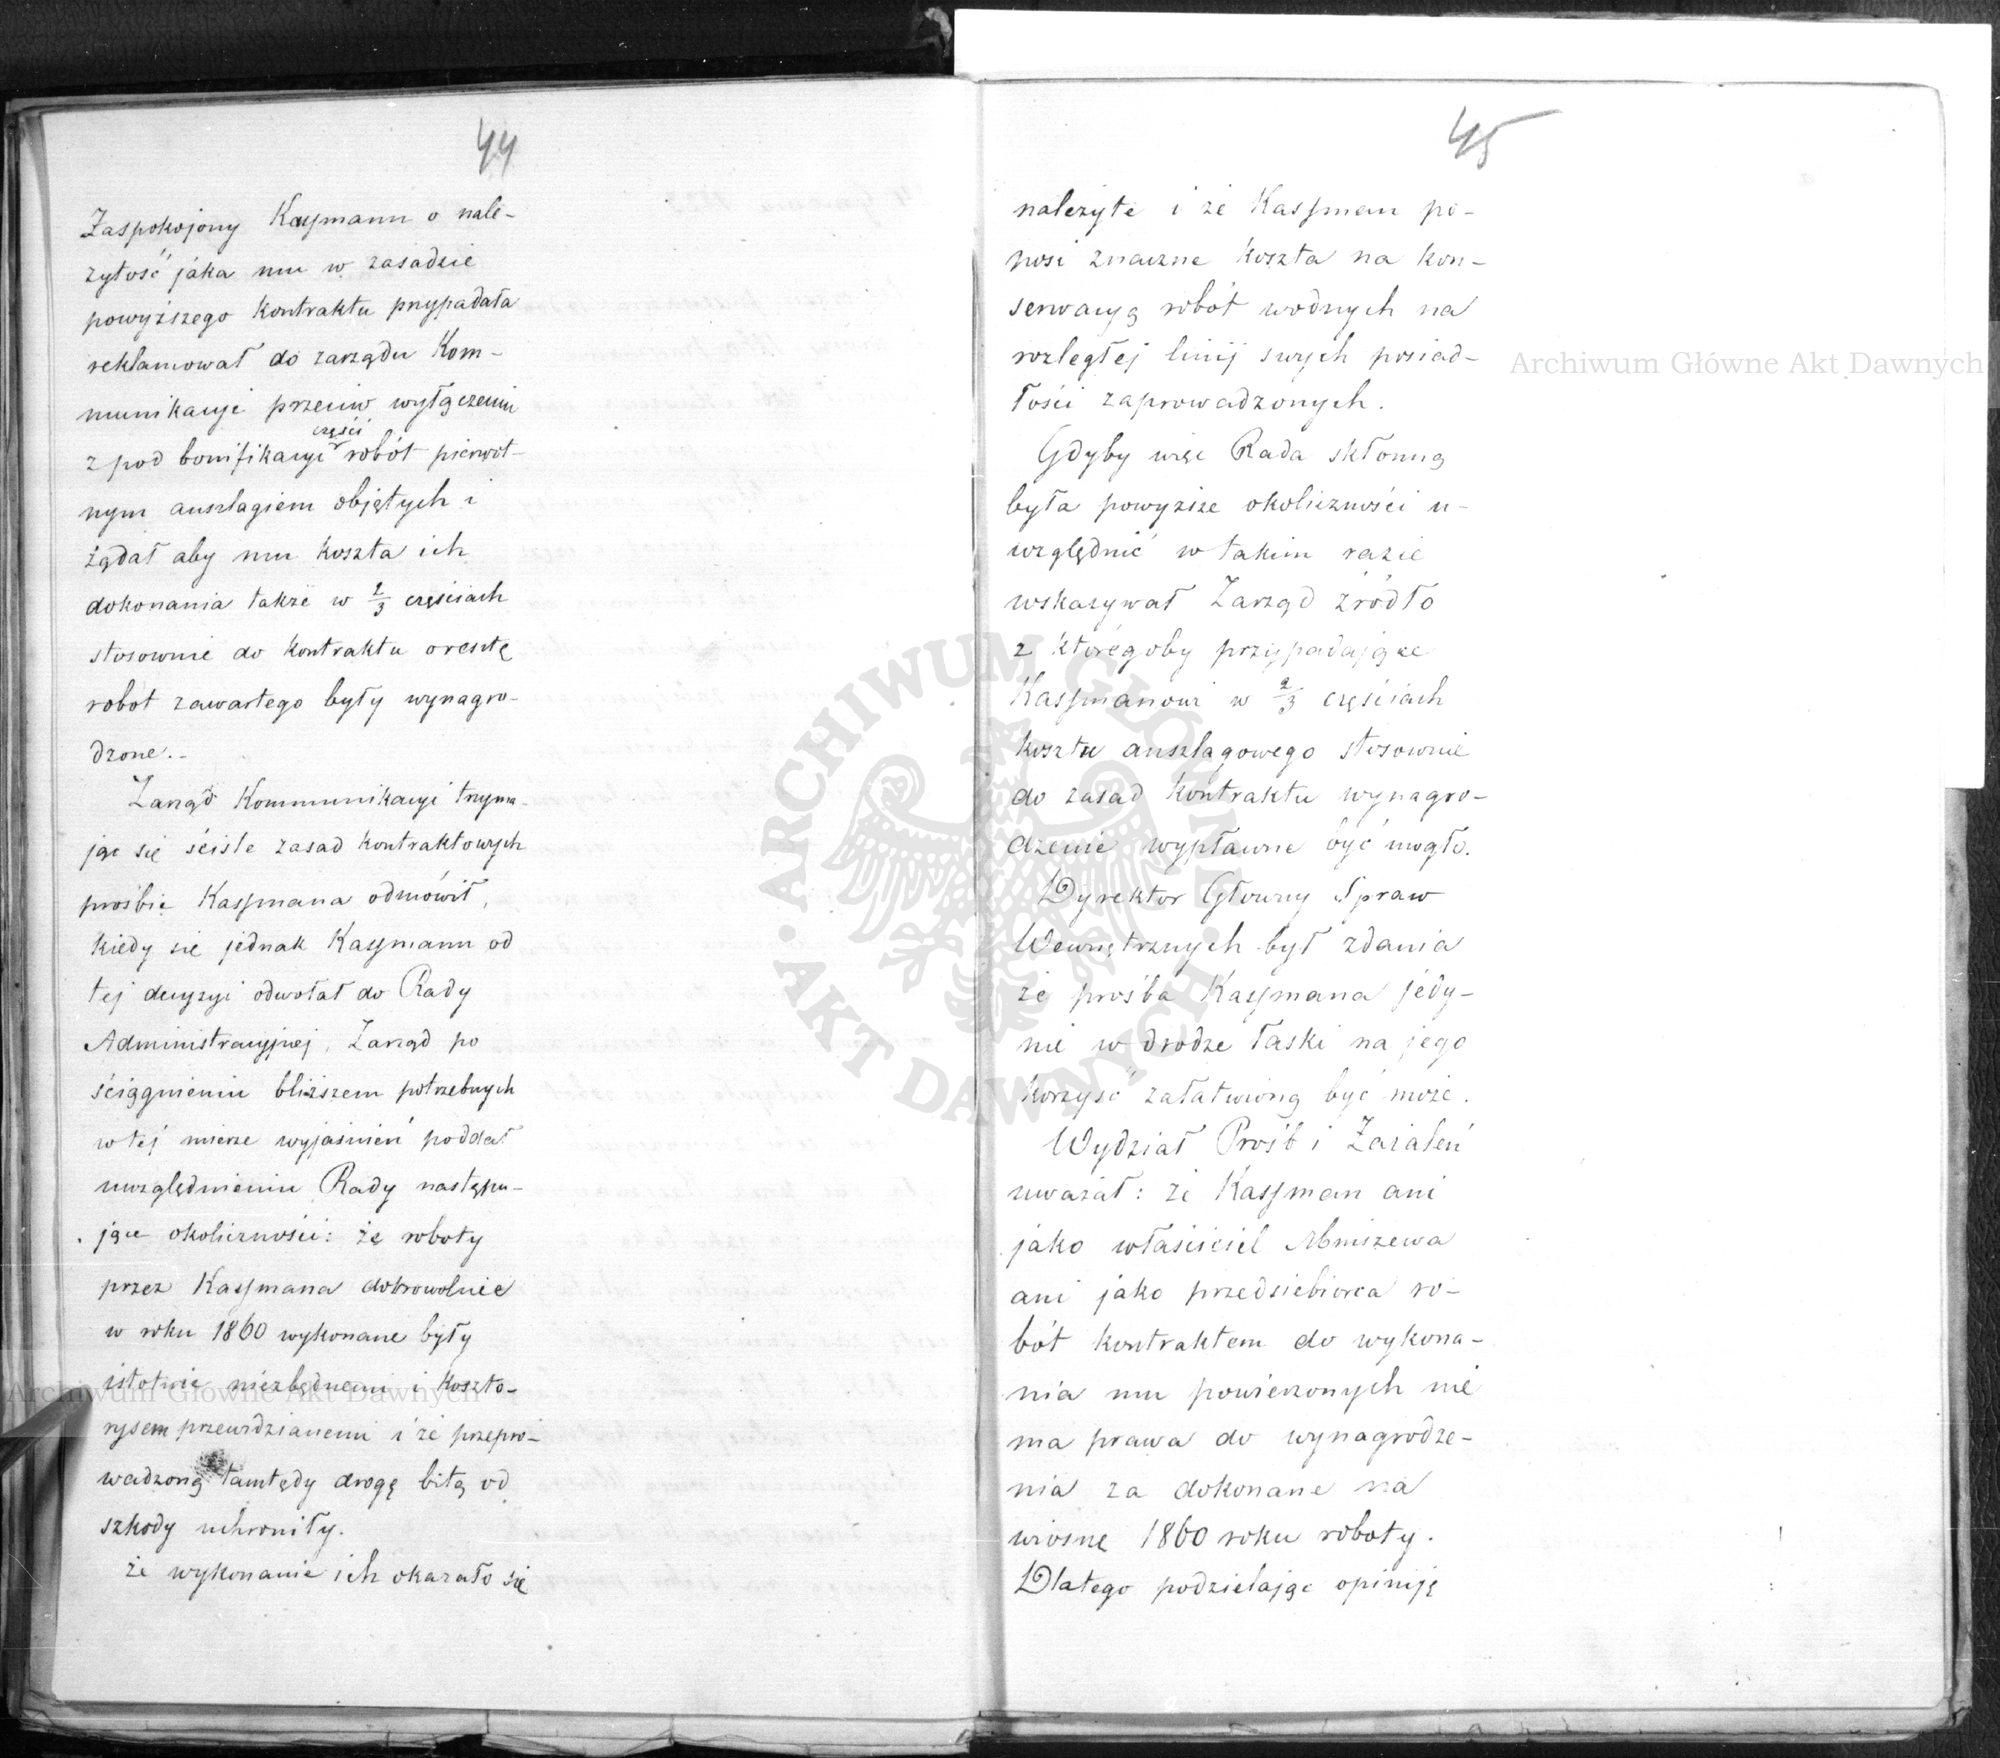 44
Zaspokojony Kassmann o nale-
żytość jaka mu w zasadzie
powyższego Kontraktu przypadała
reklamował do zarządu Kom-
munikacyi przeciw wyłączeniu
z pod bonifikacyi części robót pierwot-
nym anszlagiem objętych i
żądał aby mu koszta ich
dokonania także w 2/3 częściach
stosownie do kontraktu oresztę
robot zawartego były wynagro-
dzone.-
Zarząd Kommunikacyi trzyma-
jąc się ściśle zasad kontraktowych
prośbie Kassmana odmówił,
kiedy się jednak Kassmann od
tej decyzyi odwołał do Rady
Administracyjnej, Zarząd po
ściągnieniu bliższem potrzebnych
w tej mierze wyjaśnień poddał
uwzględnieniu Rady następu-
jące okoliczności: że roboty
przez Kassmana dobrowolnie
w roku 1860 wykonane były
istotnie niezbędnemi i koszto-
rysem przewidzianemi i że przepro-
wadzoną tamtędy drogę bitą od
szkody uchroniły.
że wykonanie ich okazało się
45
należyte i że Kassman po-
nosi znaczne koszta na kon-
serwacyą robót wodnych na
rozległej linij swych posiad-
łości zaprowadzonych.
Gdyby więc Rada skłonną
była powyższe okoliczności u-
względnić w takim razie
wskazywał Zarząd źródło
z któregoby przypadające
Kassmanowi w 2/3 częściach
kosztu anszlagowego stosownie
do zasad kontraktu wynagro-
dzenie wypławne być mogło.
Dyrektor Główny Spraw
Wewnętrznych był zdania
że prośba Kassmana jedy-
nie w drodze łaski na jego
korzyść załatwioną być może.
Wydział Próśb i Zażaleń
uważał: że Kassman ani
jako właściciel Mniszewa
ani jako przedsiebiorca ro-
bót kontraktem do wykona-
nia mu powierzonych nie
ma prawa do wynagrodze-
nia za dokonane na
wiosnę 1860 roku roboty.
Dlatego podzielając opiniję
Archiwum Główne Akt Dawnych
Archiwum Główne Akt Dawnych
ARCHIWUM GŁÓWNE
AKT DAWNYCH